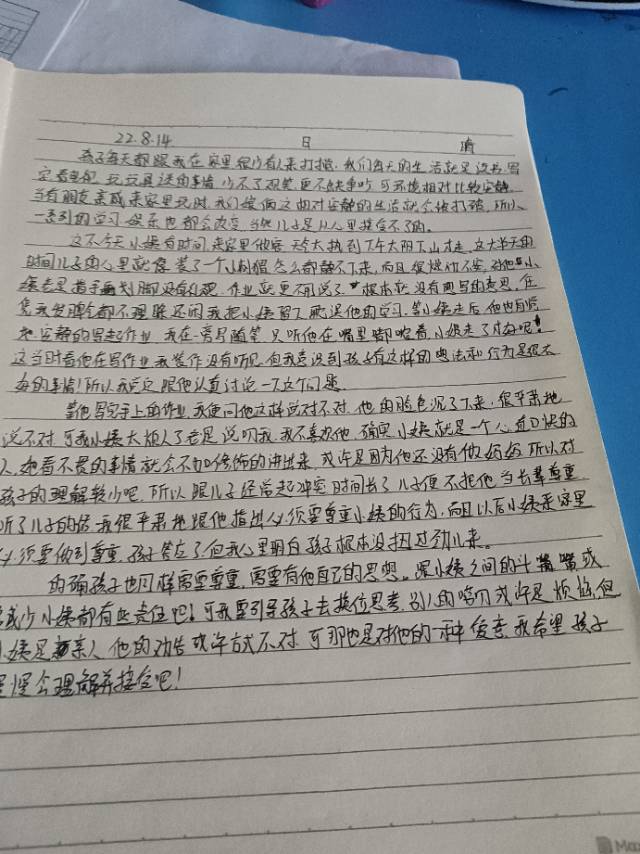 22.8.14 日 晴
孩子每天都跟我在家里很少有人来打扰.我们每天的生活就是读书.写
字看电视.玩玩具这的事情.少不了欢笑更不缺争吵.可环境相对比较安静.
当有朋友亲戚来家里玩时.我们彼俩这相对安静的生活就会被打破.所以
一系列的学习娱乐也都会改变.当然儿子是从心里接受不了的。
这不今天小姨有时间.来家里做客.天冷太热到下午太阳下山才走.这大半天的
时间儿子的心里就像装了一个小刺猬怎么都静不下来.而且很烦燥不安.对他小
姨老是指手画划脚没有礼貌.作业就更不用说了根本就没有要写的意思.任
凭我发脾气都不理睬.还问我把小姨留下耽误他的学习.等小姨走后.他也自觉
地.安静的写起作业.我在一旁写随笔.只听他在嘴里嘟哝着.小姨走了才好呢!
这当时看他在写作业.我装作没有听见.但我意识到孩子有这样的想法和行为是很不
好的事情!所以我决定跟他认真讨论一下这个问题.
等他写完手上的作业.我便问他这样说对不对.他的脸色沉了下来.很平淡地
说不对.可我小姨太烦人了老是说叨我.我不喜欢他.确实小姨就是一个心直口快的
人.她看不惯的事情就会不加修饰的讲出来.或许是因为他还没有做妈妈.所以对
孩子的理解较少吧.所以跟儿子经常起冲突.时间长了儿子便不把他当长辈尊重
听了儿子的话.我很平静地跟他指出必须要尊重小姨的行为.而且以后小姨来家里
必须要做到尊重.孩子答应了但我心里明白孩子根本没扭过劲儿来。
的确孩子也同样需要尊重.需要有他自己的思想.跟小姨之间的斗嘴或
或少小姨都有些责任吧!可我要引导孩子去换位思考.别人的唠叨或许是烦恼.但
小姨是亲人.他的劝告或许方式不对.可那也是对他的一种爱意.我希望孩子
慢慢会理解并接受吧!